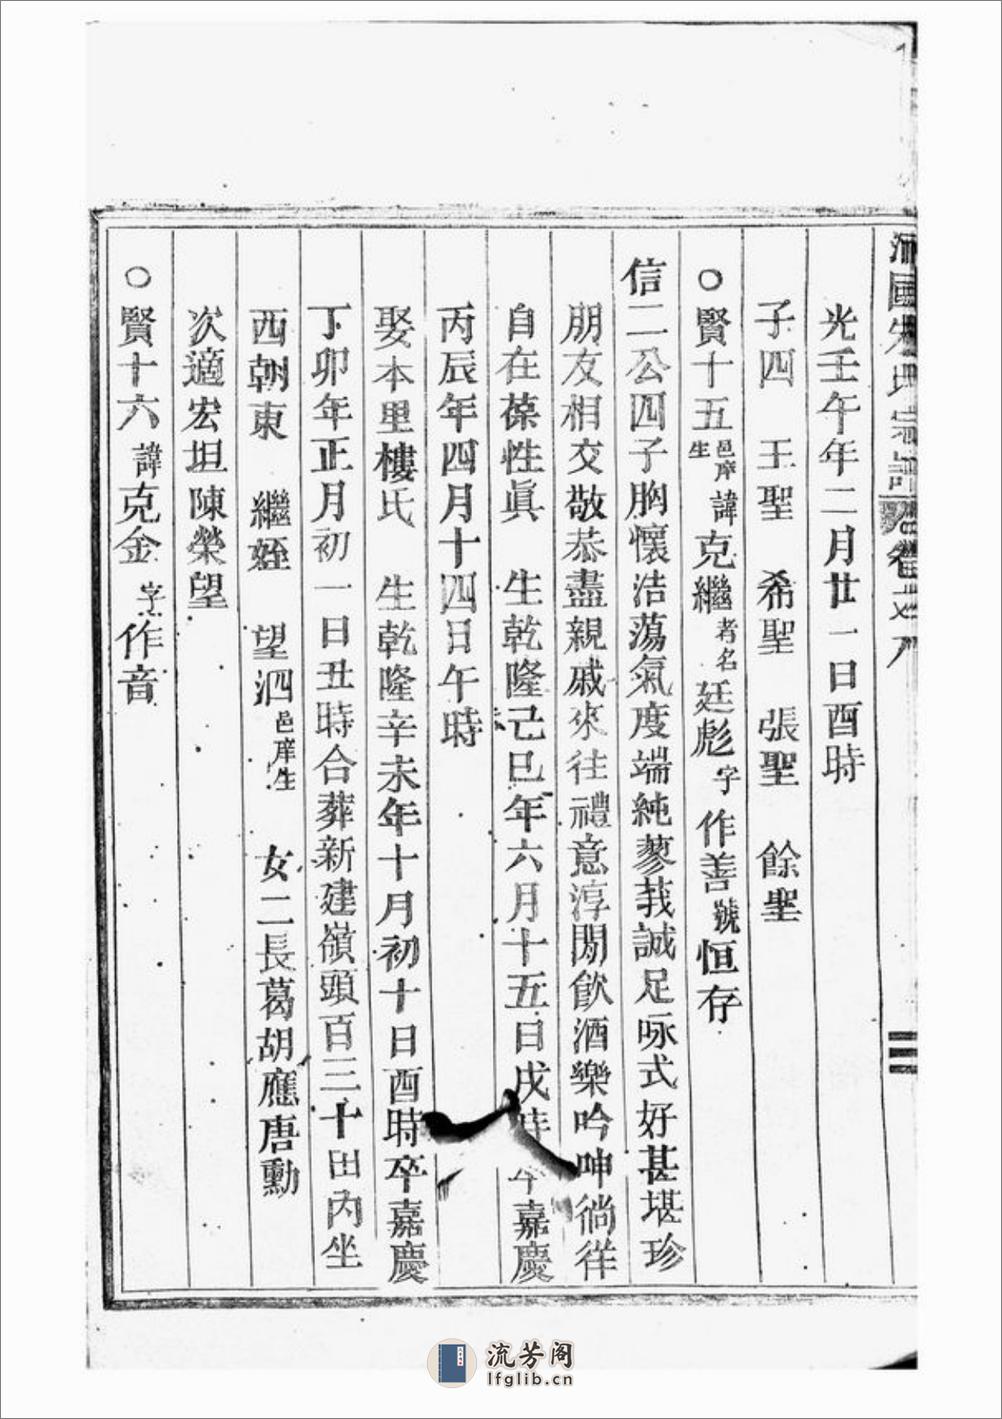 沛國朱氏宗譜 卷之八
三
光壬午年二月廿一日酉時
子四 王聖 希聖 張聖 餘聖
○賢十五邑庠生諱克繼者名廷彪字作善號恒存
信二公四子胸懷浩蕩氣度端純蓼莪誠足咏式好甚堪珍
朋友相交敬恭盡親戚來往禮意淳閒飲酒樂吟呻徜徉
自在葆性眞 生乾隆己巳年六月十五日戌時卒嘉慶
丙辰年四月十四日午時
娶本里樓氏 生乾隆辛未年十月初十日酉時卒嘉慶
丁卯年正月初一日丑時合葬新建嶺頭百三十田內坐
西朝東 繼姪 望泗邑庠生 女二長葛胡應唐勳
次適宏坦陳榮望
○賢十六諱克金字作音
流芳阁
lfglib.cn